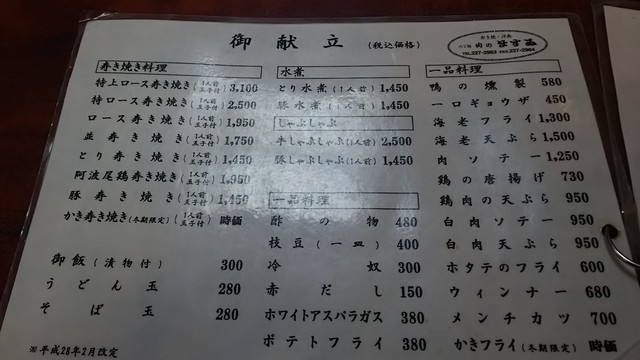 御献立 (税込価格)
TEL.227-2963 FAX.227-2964
寿き焼き料理
特上ロース寿き焼き(1人前 玉子付) 3,100
特ロース寿き焼き(1人前 玉子付) 2,500
ロース寿き焼き(1人前 玉子付) 1,950
並寿き焼き(1人前 玉子付) 1,750
とり寿き焼き(1人前 玉子付) 1,450
阿波尾鶏寿き焼き(1人前 玉子付) 1,950
豚寿き焼き(1人前 玉子付) 1,450
かき寿き焼き(冬期限定)(1人前 玉子付) 時価
御飯(漬物付) 300
うどん玉 280
そば玉 280
※平成26年2月改定
水煮
とり水煮(1人前) 1,450
豚水煮(1人前) 1,450
しゃぶしゃぶ
牛しゃぶしゃぶ(1人前) 2,500
豚しゃぶしゃぶ(1人前) 1,450
一品料理
酢の物 480
枝豆(一皿) 400
冷奴 300
赤だし 150
ホワイトアスパラガス 380
ポテトフライ 380
一品料理
鴨の燻製 580
一口ギョウザ 450
海老フライ 1,300
海老天ぷら 1,500
肉ソテー 1,250
鶏の唐揚げ 730
鶏肉の天ぷら 950
白肉ソテー 950
白肉天ぷら 950
ホタテのフライ 600
ウィンナー 680
メンチカツ 700
かきフライ(冬期限定) 時価